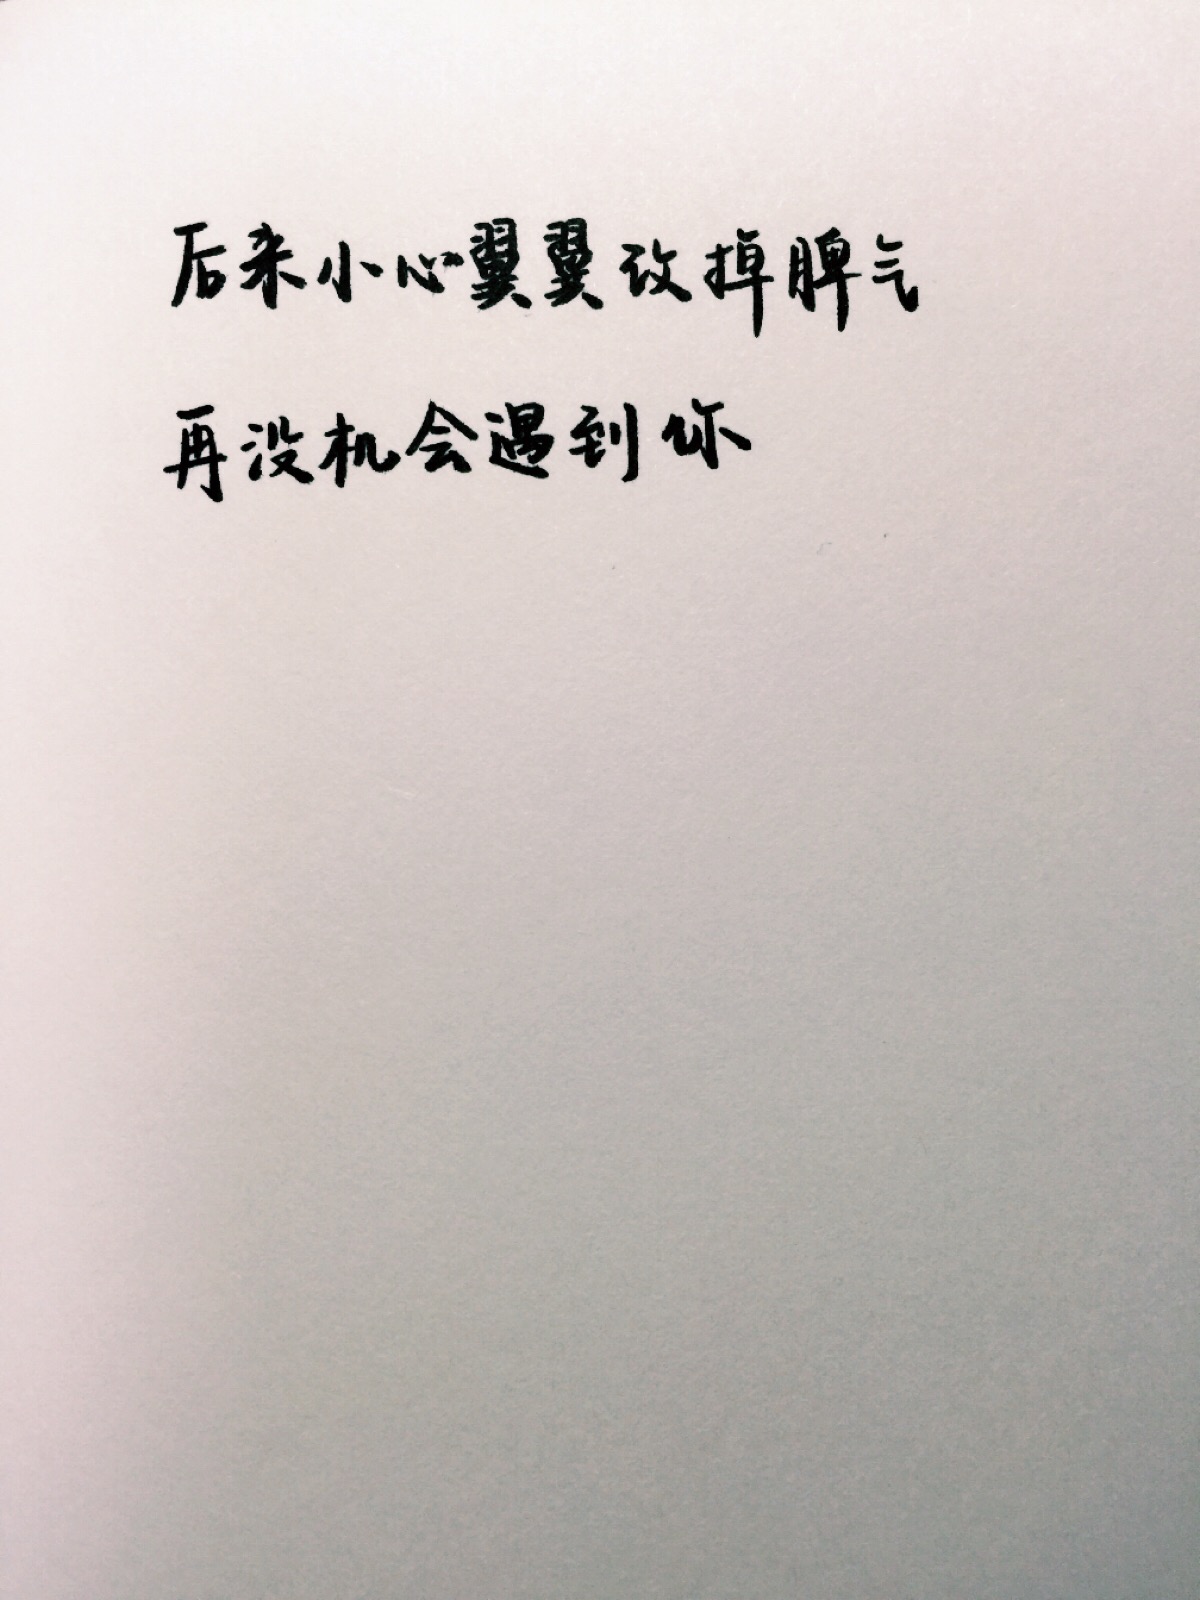 后来小心翼翼改掉脾气
再没机会遇到你